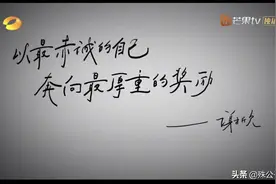 芒果TV
独播
以最赤诚的自己
奔向最厚重的奖励
——谢欣
头条@殊公